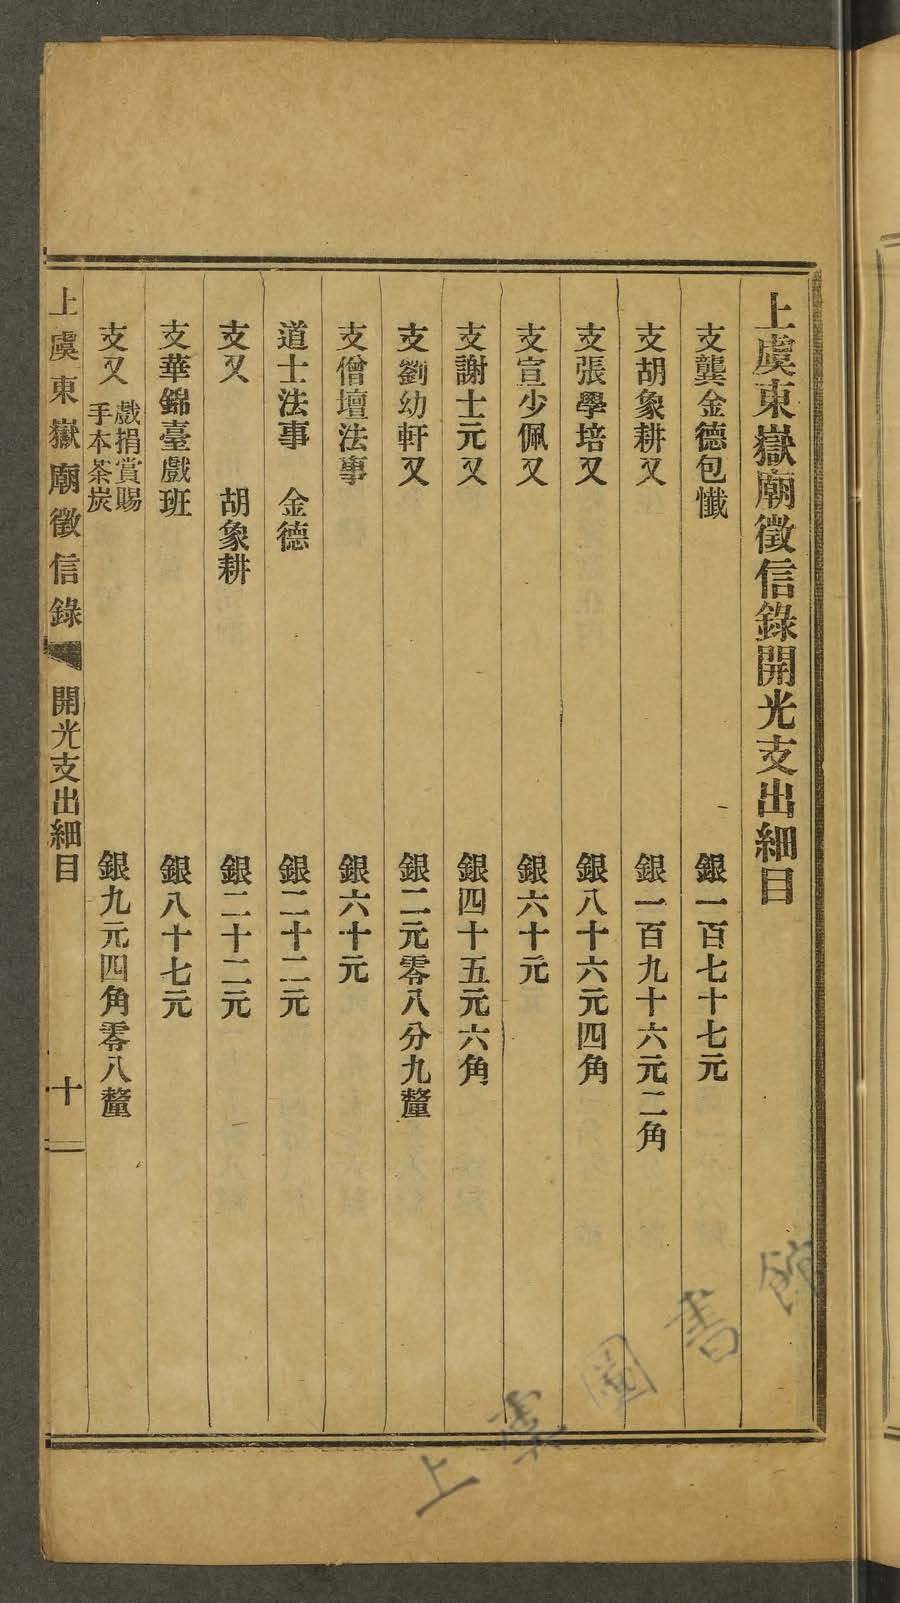 上虞東嶽廟徵信錄開光支出細目
支龔金德包懺 銀一百七十七元
支胡象耕又 銀一百九十六元二角
支張學培又 銀八十六元四角
支宣少佩又 銀六十元
支謝士元又 銀四十五元六角
支劉幼軒又 銀二元零八分九釐
支僧壇法事 銀六十元
道士法事 金德 銀二十二元
支又 胡象耕 銀二十二元
支華錦臺戲班 銀八十七元
支又 戲捐賞賜手本茶炭 銀九元四角零八釐
上虞東嶽廟徵信錄 開光支出細目 十
上虞圖書館